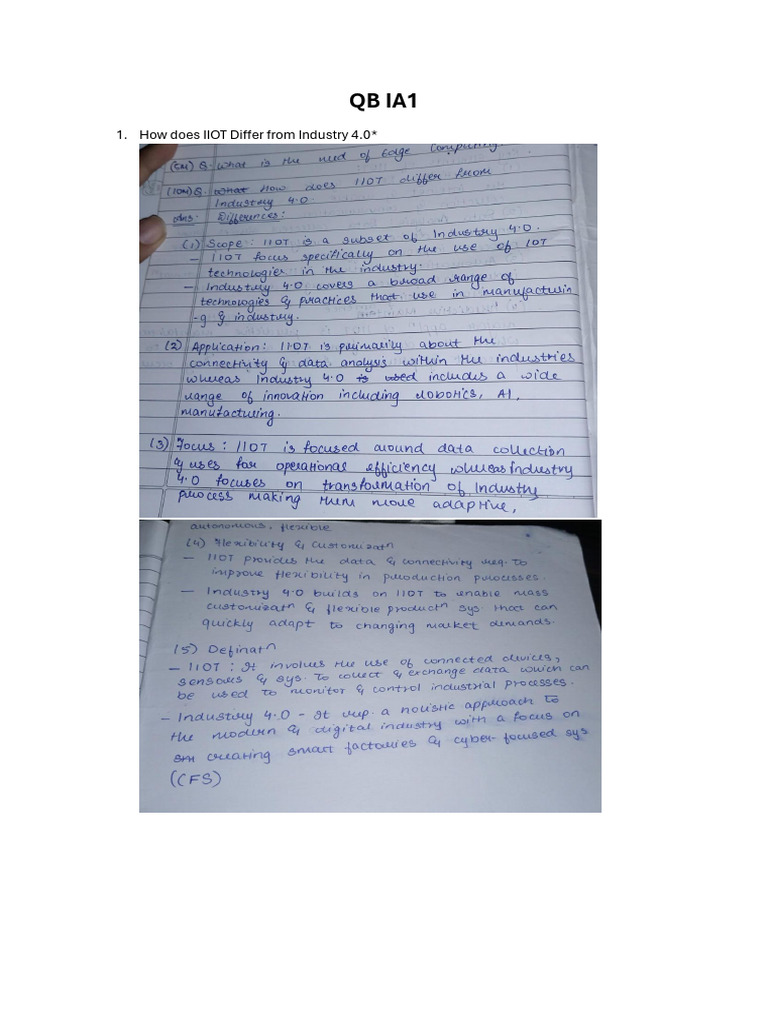 QB IA1
1. How does IIOT Differ from Industry 4.0*
(5M) Q. What is the need of Edge Computing.
(10M) Q. What How does IIOT differ from
Industry 4.0.
ans: Differences:
(1) Scope: IIOT is a subset of Industry 4.0.
- IIOT focus specifically on the use of IOT
technologies in the industry.
- Industry 4.0 covers a broad range of
technologies & practices that use in manufacturin
-g & industry.
(2) Application: IIOT is primarily about the
connectivity & data analysis within the industries
whereas Industry 4.0 is used includes a wide
range of innovation including robotics, AI,
manufacturing.
(3) Focus: IIOT is focused around data collection
& uses for operational efficiency whereas Industry
4.0 focuses on transformation of Industry
process making them more adaptive,
autonomous, flexible
(4) Flexibility & Customizatn
- IIOT provides the data & connectivity req. to
improve flexibility in production processes.
- Industry 4.0 builds on IIOT to enable mass
customizatn & flexible productn sys. that can
quickly adapt to changing market demands.
(5) Definatn
- IIOT: It involves the use of connected devices,
sensors & sys. to collect & exchange data which can
be used to monitor & control industrial processes.
- Industry 4.0 - It rep. a holistic approach to
the modern & digital industry with a focus on
creating smart factories & cyber-focused sys
(CFS)